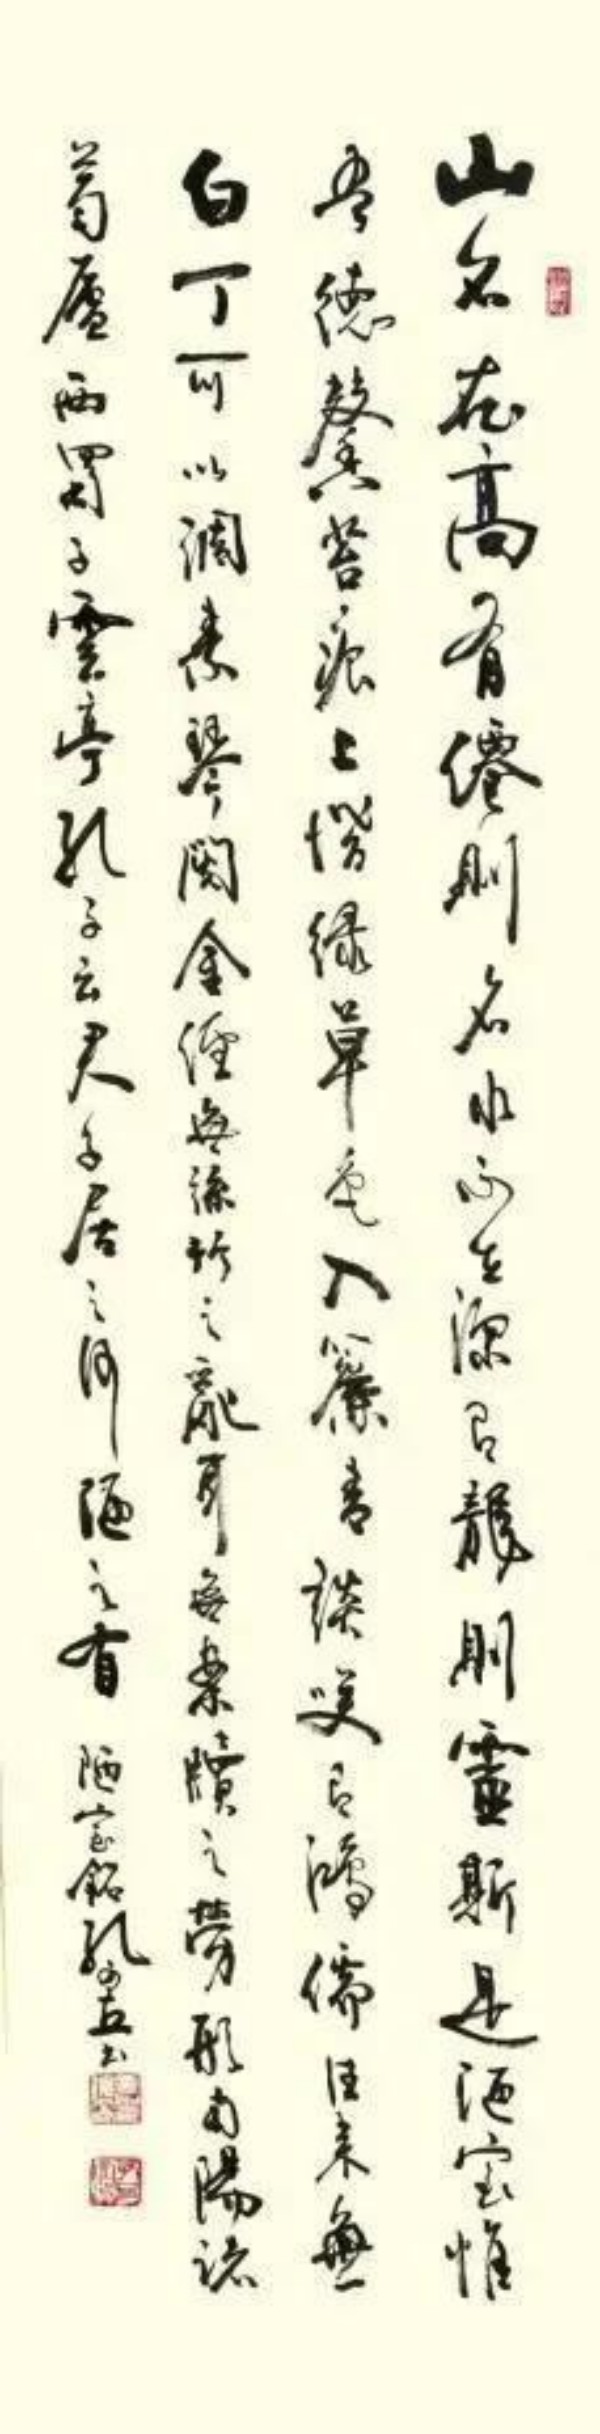 山名在高有僊則名水不在深有龍則靈斯是陋室惟
吾德馨苔痕上階綠草色入簾青談笑有鴻儒往來無
白丁可以調素琴閱金經無絲竹之亂耳無案牘之勞形南陽諸
葛廬西蜀子雲亭孔子云君子居之何陋之有 陋室銘